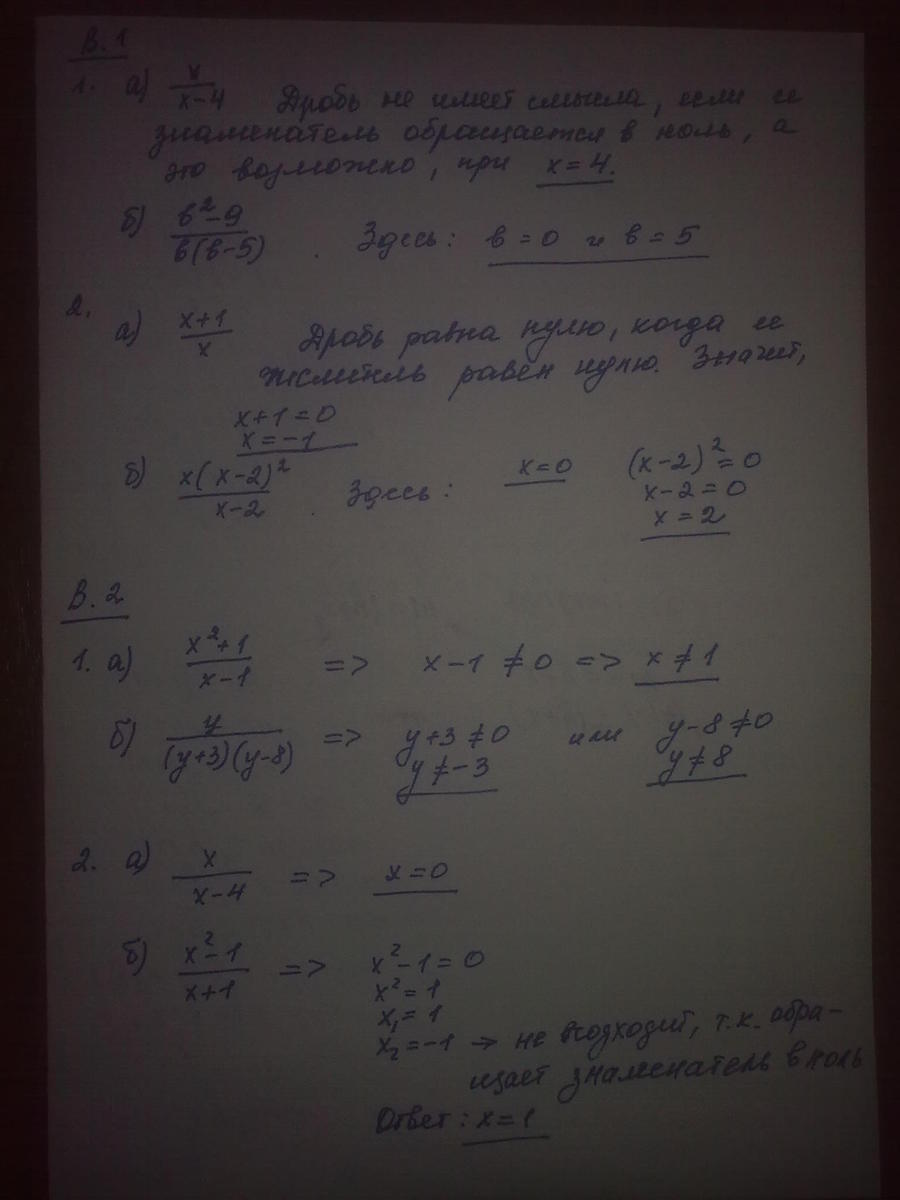 В. 1
1. а) x/(x-4) Дробь не имеет смысла, если ее
знаменатель обращается в ноль, а
это возможно, при x = 4.
б) (в²-9)/(в(в-5)). Здесь: в = 0 и в = 5
2.
а) (x+1)/x Дробь равна нулю, когда ее
числитель равен нулю. Значит,
x+1 = 0
x = -1
б) x(x-2)²/(x-2). Здесь: x=0 (x-2)² = 0
x-2 = 0
x = 2
В. 2
1. а) (x²+1)/(x-1) => x-1 ≠ 0 => x ≠ 1
б) y/((y+3)(y-8)) => y+3 ≠ 0 или y-8 ≠ 0
y ≠ -3 y ≠ 8
2. а) x/(x-4) => x = 0
б) (x²-1)/(x+1) => x²-1 = 0
x² = 1
x₁ = 1
x₂ = -1 → не подходит, т.к. обра-
щает знаменатель в ноль
Ответ: x = 1